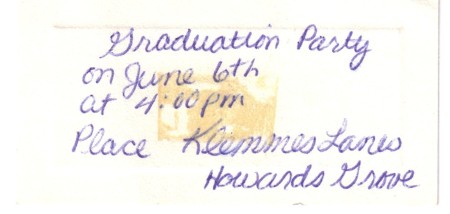 Graduation Party
on June 6th
at 4:00 pm
Place Klemmes Lanes
Howards Grove